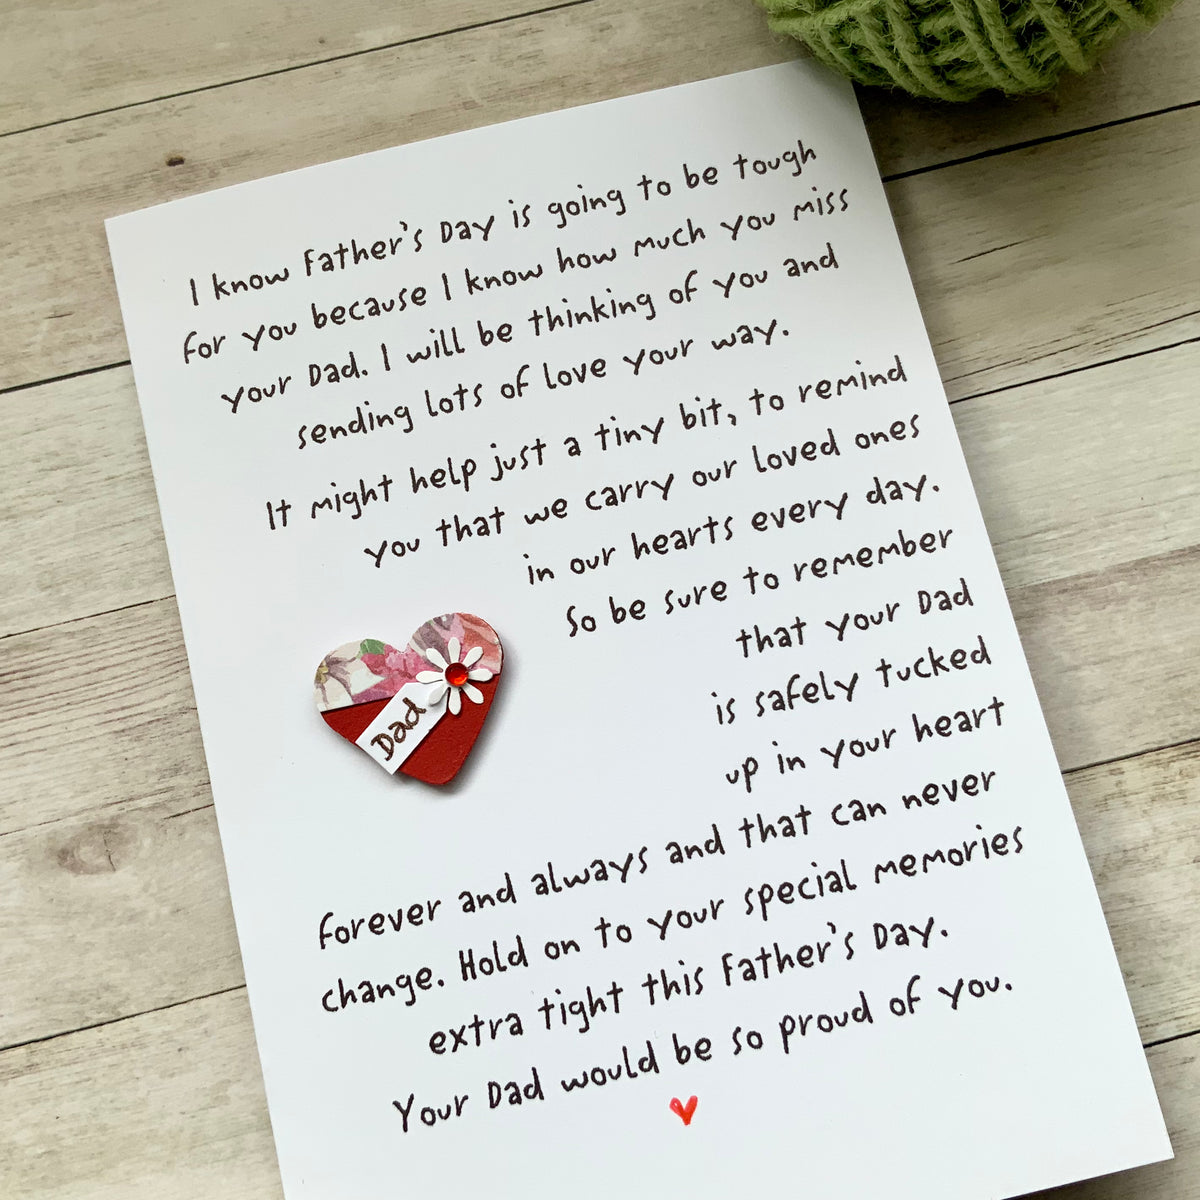 I know Father's Day is going to be tough
for you because I know how much you miss
your Dad. I will be thinking of you and
sending lots of love your way.
It might help just a tiny bit, to remind
you that we carry our loved ones
in our hearts every day.
So be sure to remember
that your Dad
is safely tucked
up in your heart
forever and always and that can never
change. Hold on to your special memories
extra tight this Father's Day.
Your Dad would be so proud of you.
Dad